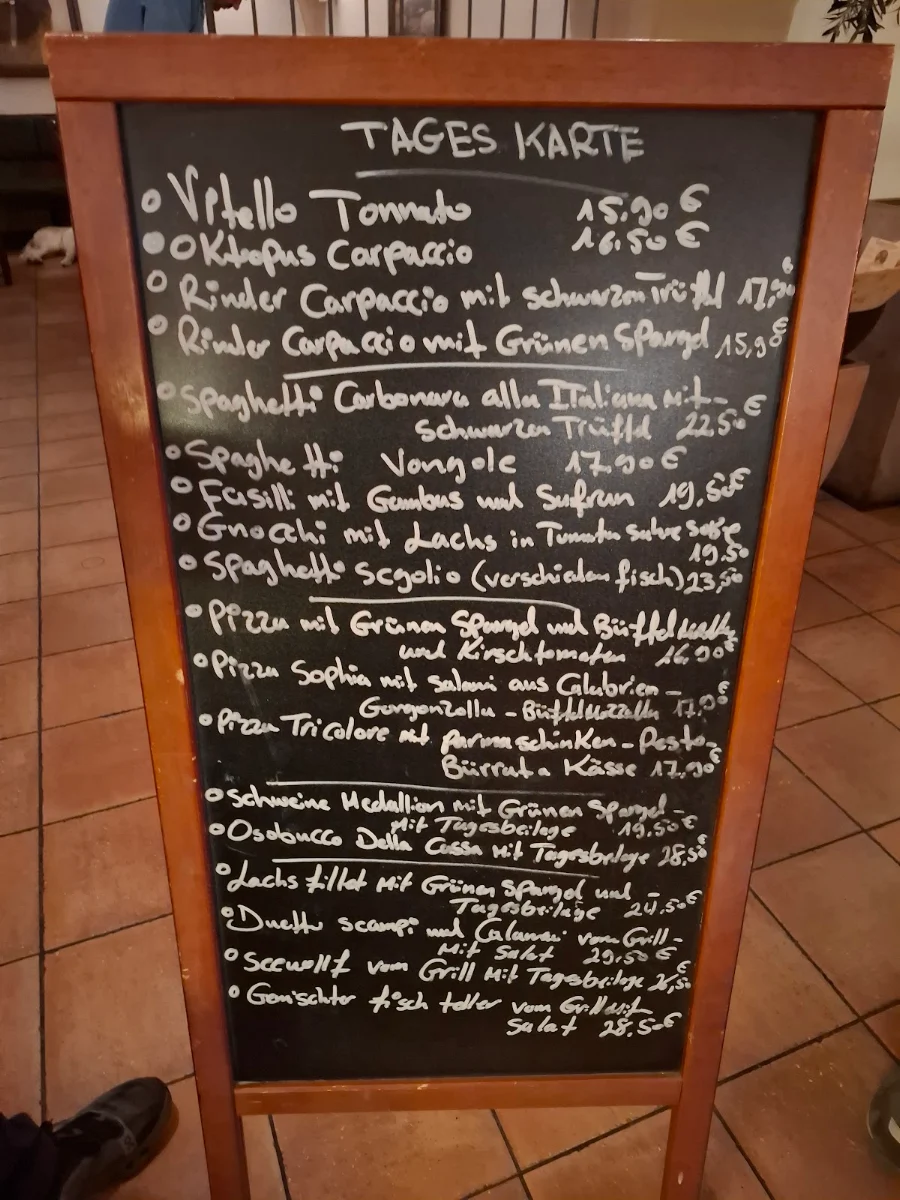 TAGES KARTE
Vitello Tonnato 15.90 €
Oktopus Carpaccio 16.50 €
Rinder Carpaccio mit schwarzen Trüffel 17,90 €
Rinder Carpaccio mit Grünen Spargel 15,90 €
Spaghetti Carbonara alla Italiana mit-
schwarzen Trüffel 22.50 €
Spaghetti Vongole 17.90 €
Fusilli mit Gambas und Safran 19,50 €
Gnocchi mit Lachs in Tomaten Sahne Soße
19.50
Spaghetti scgolio (verschieden fisch) 23,50
Pizza mit Grünen Spargel und Büffel
und Kirschtomaten 16,90 €
Pizza Sophia mit salami aus Calabrien -
Gorgonzolla - Büffelmozzella 17.90 €
Pizza Tricolore mit parmaschinken - Pesto -
Bürrata Kässe 17,90 €
schweine Medallion mit Grünen Spargel -
Mit Tagesbeilage 19,50 €
Osobucco Della Cassa Mit Tagesbeilage 28,50 €
Lachs fillet Mit Grünen Spargel und -
Tagesbeilage 24,50 €
Duetto scampi und Calamari vom Grill -
Mit Salat 29.50 €
Seewolf vom Grill Mit Tagesbeilage 26,50 €
Gemischter fisch teller vom Grill mit
Salat 28,50 €